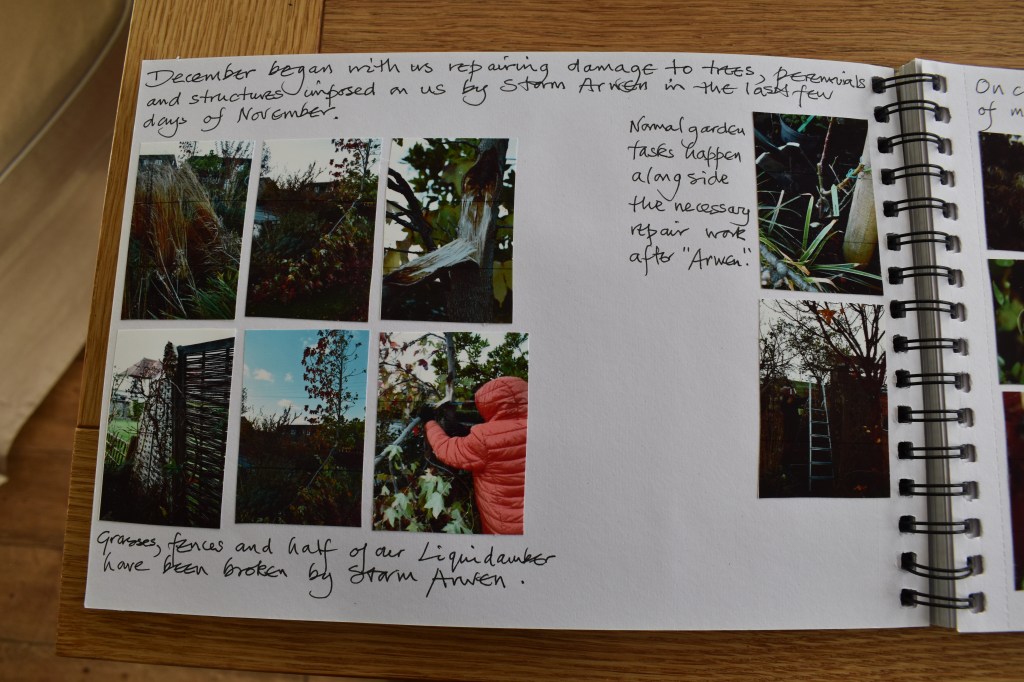 December began with us repairing damage to trees, perennials
and structures imposed on us by Storm Arwen in the last few
days of November.
Normal garden
tasks happen
alongside
the necessary
repair work
after "Arwen".
Grasses, fences and half of our Liquidamber
have been broken by Storm Arwen.
On
of